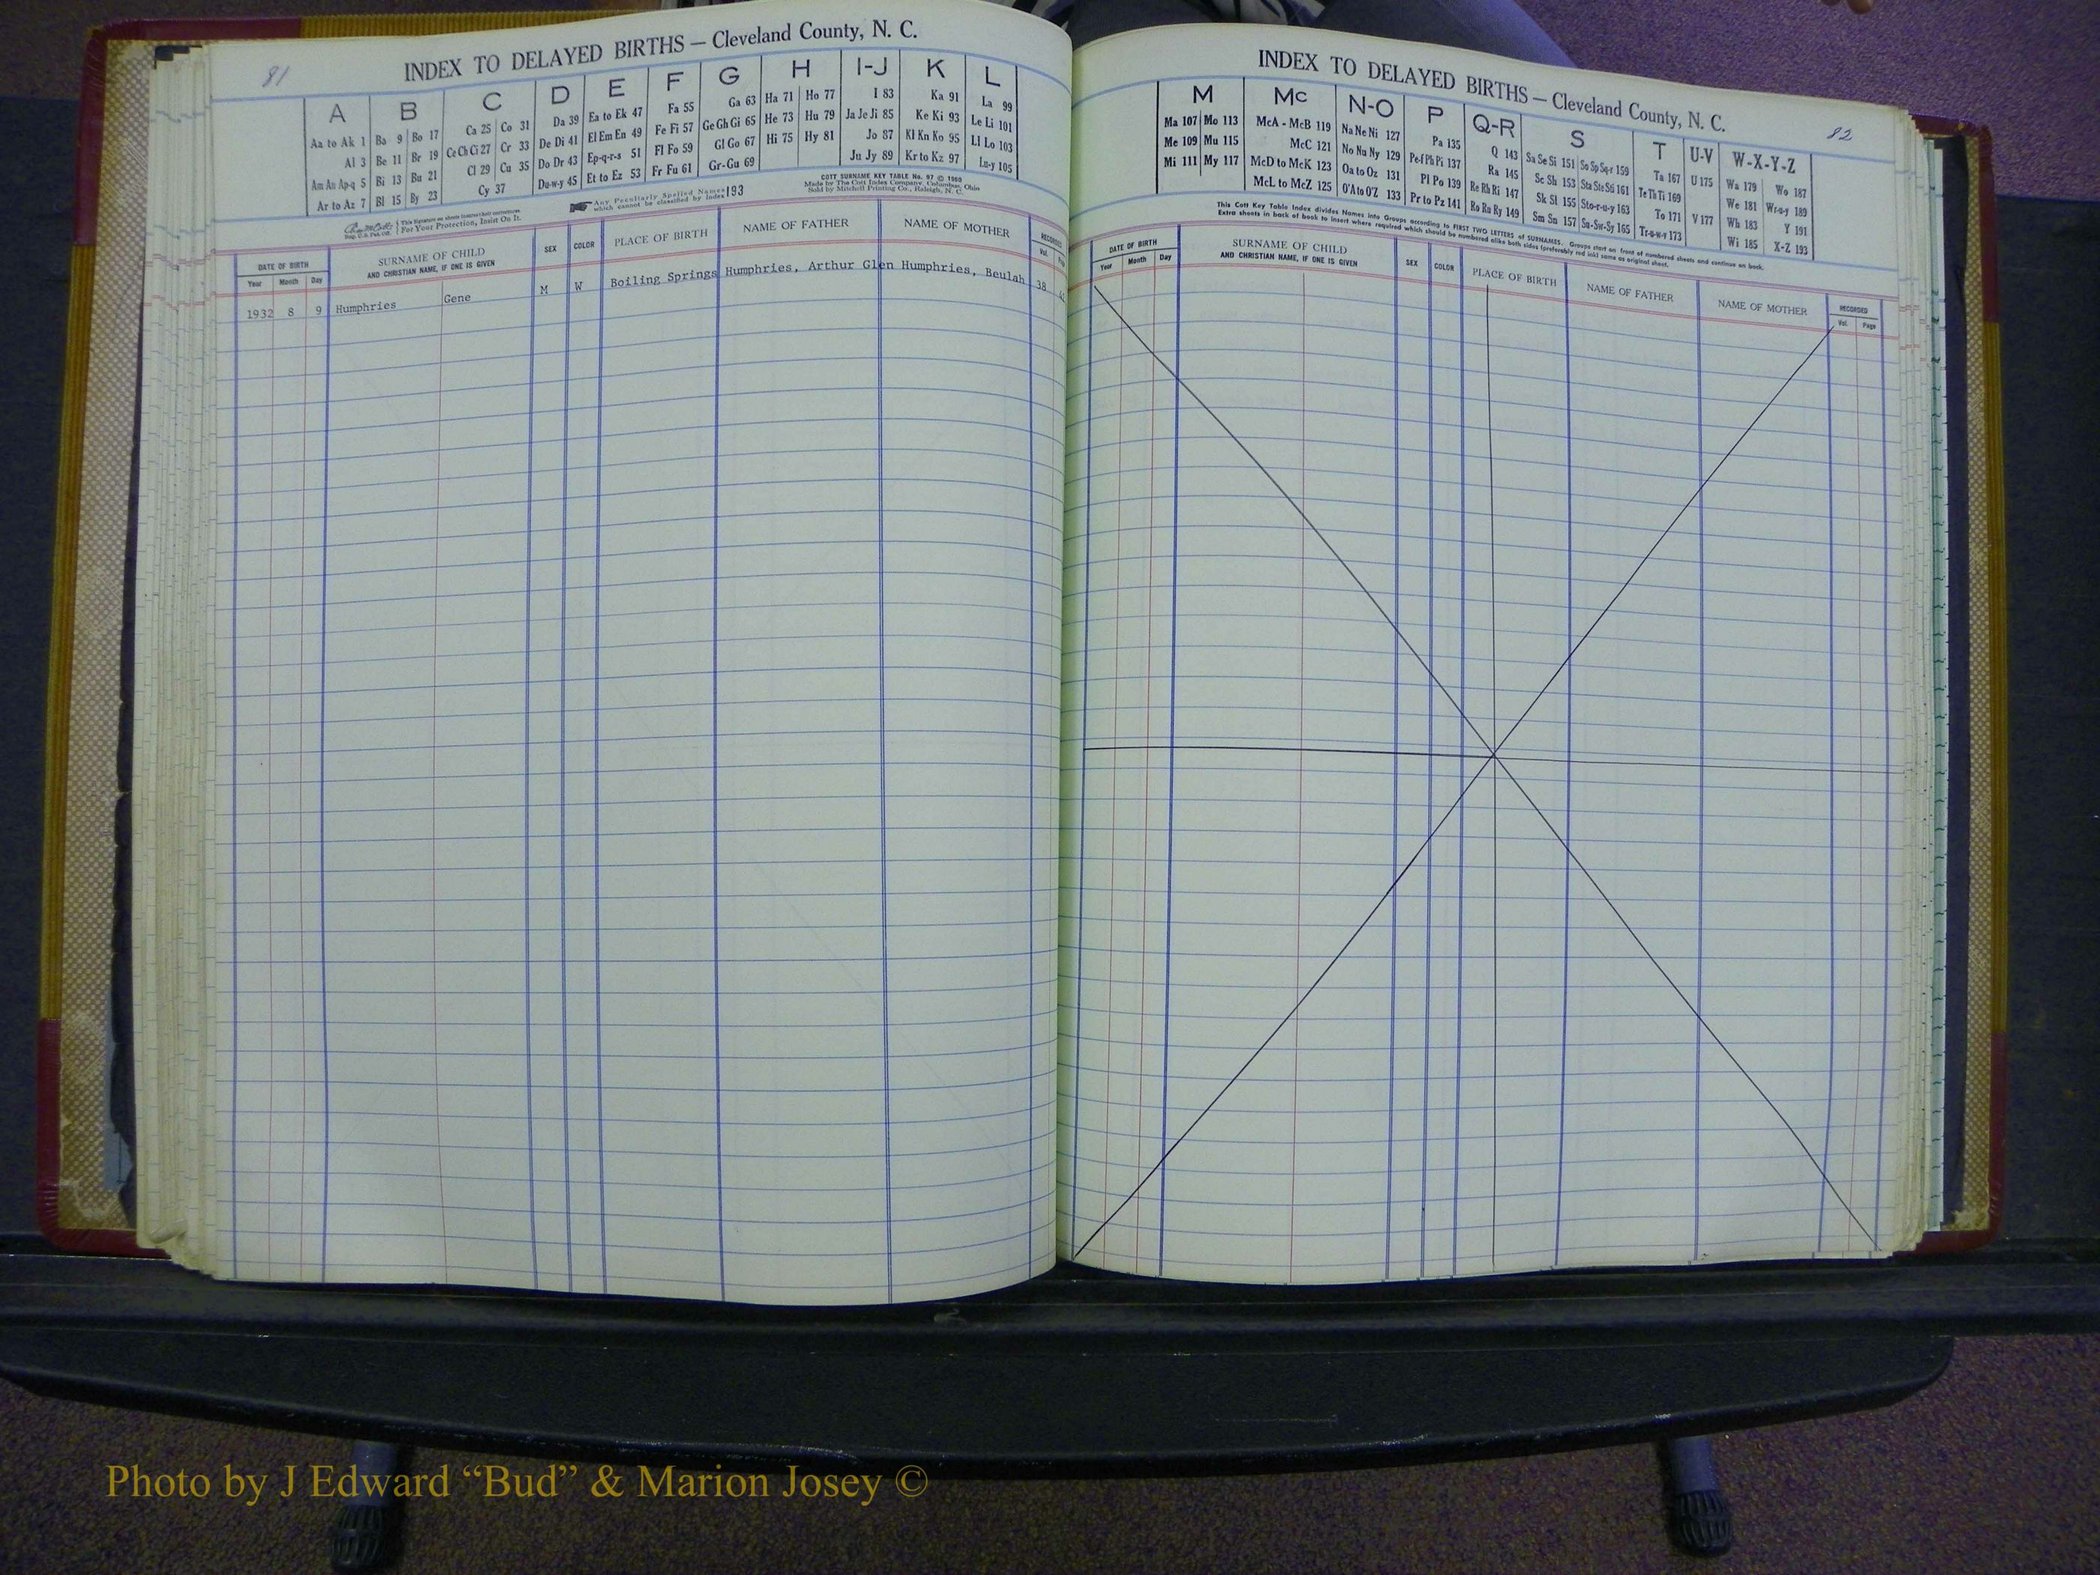 81
INDEX TO DELAYED BIRTHS — Cleveland County, N. C.
A B C D E F G H I-J K L
Aa to Ak 1 Ba 9 Bo 17 Ca 25 Co 31 Da 39 Ea to Ek 47 Fa 55 Ga 63 Ha 71 Ho 77 I 83 Ka 91 La 99
Al 3 Be 11 Br 19 Ce Ch Ci 27 Cr 33 De Di 41 El Em En 49 Fe Fi 57 Ge Gh Gi 65 He 73 Hu 79 Ja Je Ji 85 Ke Ki 93 Le Li 101
Am An Ap-q 5 Bi 13 Bu 21 Cl 29 Cu 35 Do Dr 43 Ep-q-r-s 51 Fl Fo 59 Gl Go 67 Hi 75 Hy 81 Jo 87 Kl Kn Ko 95 Ll Lo 103
Ar to Az 7 Bl 15 By 23 Cy 37 Du-w-y 45 Et to Ez 53 Fr Fu 61 Gr-Gu 69 Ju Jy 89 Kr to Kz 97 Lu-y 105
COTT SURNAME KEY TABLE No. 97 © 1960
Made by The Cott Index Company, Columbus, Ohio
Sold by Mitchell Printing Co., Raleigh, N. C.
Any Peculiarly Spelled Names
which cannot be classified by Index 193
This Signature on sheets insures their correctness.
For Your Protection, Insist On It.
Reg. U.S. Pat. Off.
DATE OF BIRTH SURNAME OF CHILD SEX COLOR PLACE OF BIRTH NAME OF FATHER NAME OF MOTHER
Year Month Day AND CHRISTIAN NAME, IF ONE IS GIVEN Vol.
1932 8 9 Humphries Gene M W Boiling Springs Humphries, Arthur Glen Humphries, Beulah 38
INDEX TO DELAYED BIRTHS — Cleveland County, N. C.
82
M Mc N-O P Q-R S T U-V W-X-Y-Z
Ma 107 Mo 113 McA - McB 119 Na Ne Ni 127 Pa 135 Q 143 Sa Se Si 151 So Sp Sq-r 159 Ta 167 U 175 Wa 179 Wo 187
Me 109 Mu 115 McC 121 No Nu Ny 129 Pe-f Ph Pi 137 Ra 145 Sc Sh 153 Sta Ste Sti 161 Te Th Ti 169 V 177 We 181 Wr-u-y 189
Mi 111 My 117 McD to McK 123 Oa to Oz 131 Pl Po 139 Re Rh Ri 147 Sk Sl 155 Sto-r-u-y 163 To 171 Wh 183 Y 191
McL to McZ 125 O'A to O'Z 133 Pr to Pz 141 Ro Ru Ry 149 Sm Sn 157 Su-Sw-Sy 165 Tr-u-w-y 173 Wi 185 X-Z 193
This Cott Key Table Index divides Names into Groups according to FIRST TWO LETTERS of SURNAMES. Groups start on front of numbered sheets and continue on back.
Extra sheets in back of book to insert where required which should be numbered alike both sides (preferably red ink) same as original sheet.
DATE OF BIRTH SURNAME OF CHILD SEX COLOR PLACE OF BIRTH NAME OF FATHER NAME OF MOTHER RECORDED
Year Month Day AND CHRISTIAN NAME, IF ONE IS GIVEN Vol. Page
Photo by J Edward “Bud” & Marion Josey ©